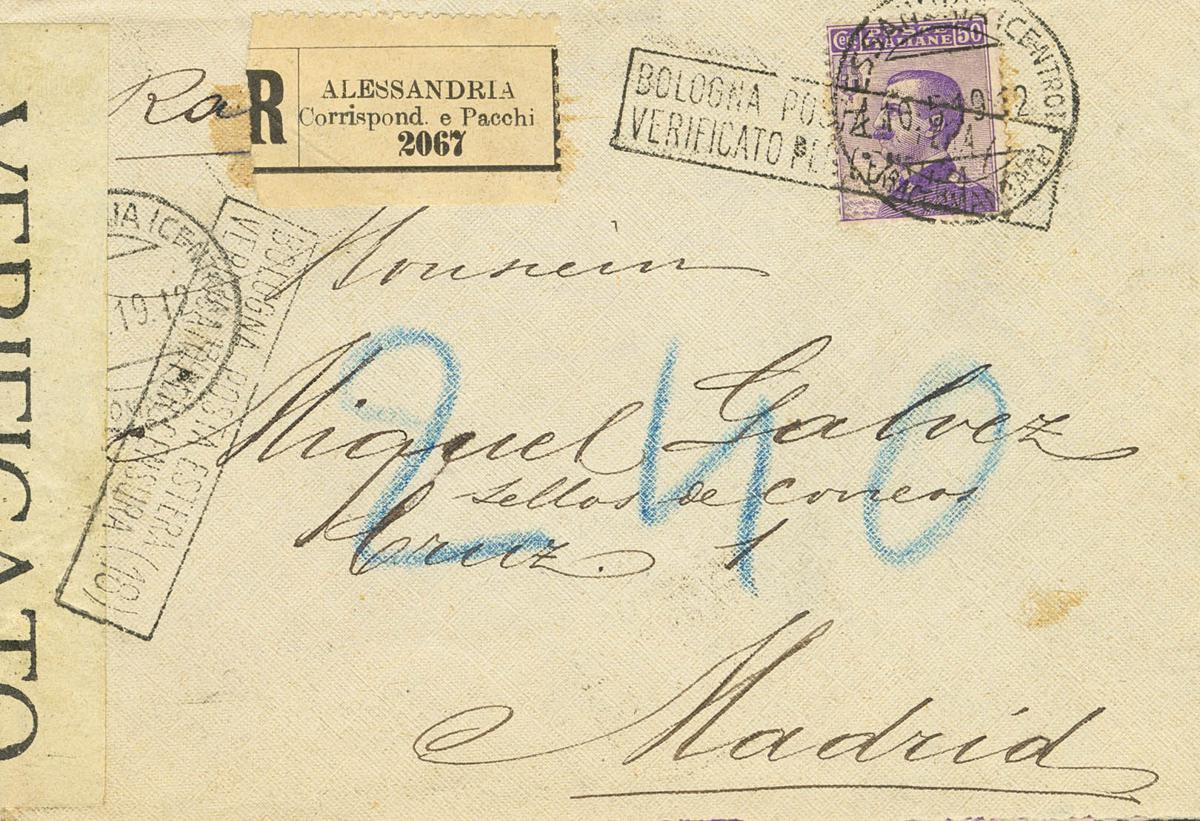 R
ALESSANDRIA
Corrispond. e Pacchi
2067
Ra
Cen. POSTE 50
ITALIANE
(CENTRO)
16.5.19.12
BOLOGNA POSTA
VERIFICATO PER
VERIFICATO
(CENTRO)
.19.12
BOLOGNA POSTA ESTERA
VERIFICATO PER CENSURA (16)
Monsieur
Miguel Galvez
sellos de correos
Cruz. 1
Madrid
240